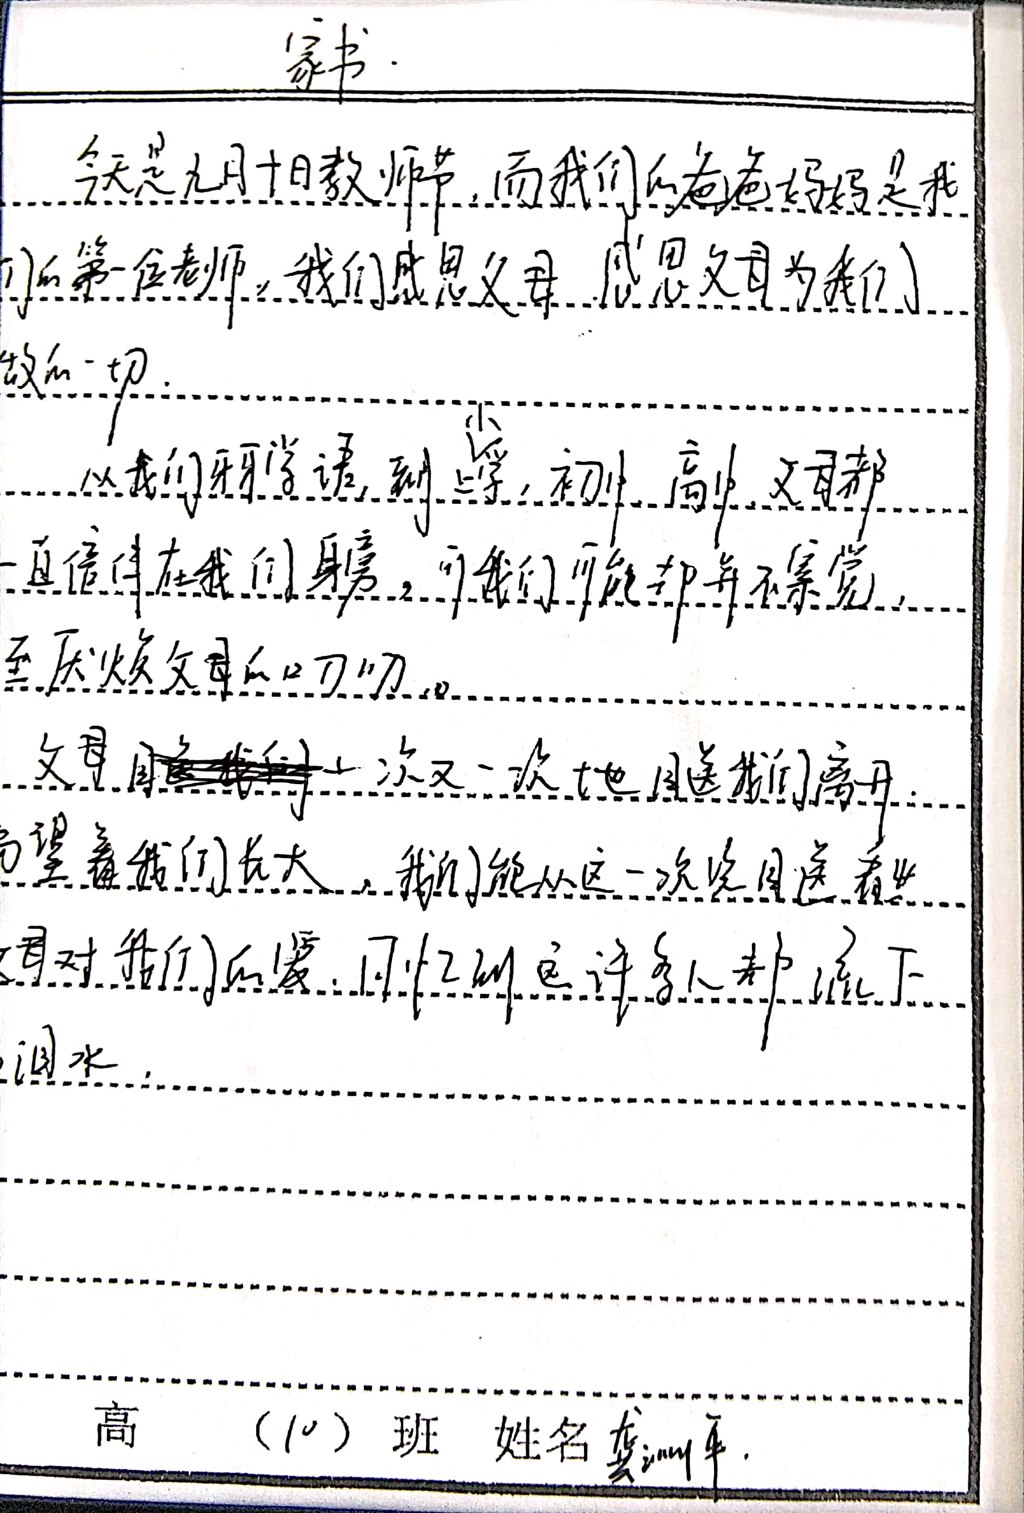 家书.
今天是九月十日教师节,而我们的爸爸妈妈是我
们的第一位老师。我们感恩父母 感恩父母为我们
做的一切.
从我们牙牙学语,到上小学,初中、高中,父母都
一直倍伴在我们身旁。可我们可能却并不察觉,
至厌烦父母的叨叨。
父母目 一次又一次地目送我们离开.
望着我们长大,我们能从这一次次目送看出
母对我们的爱.
许多人都流下
泪水.
高 (10) 班 姓名 龚 平.